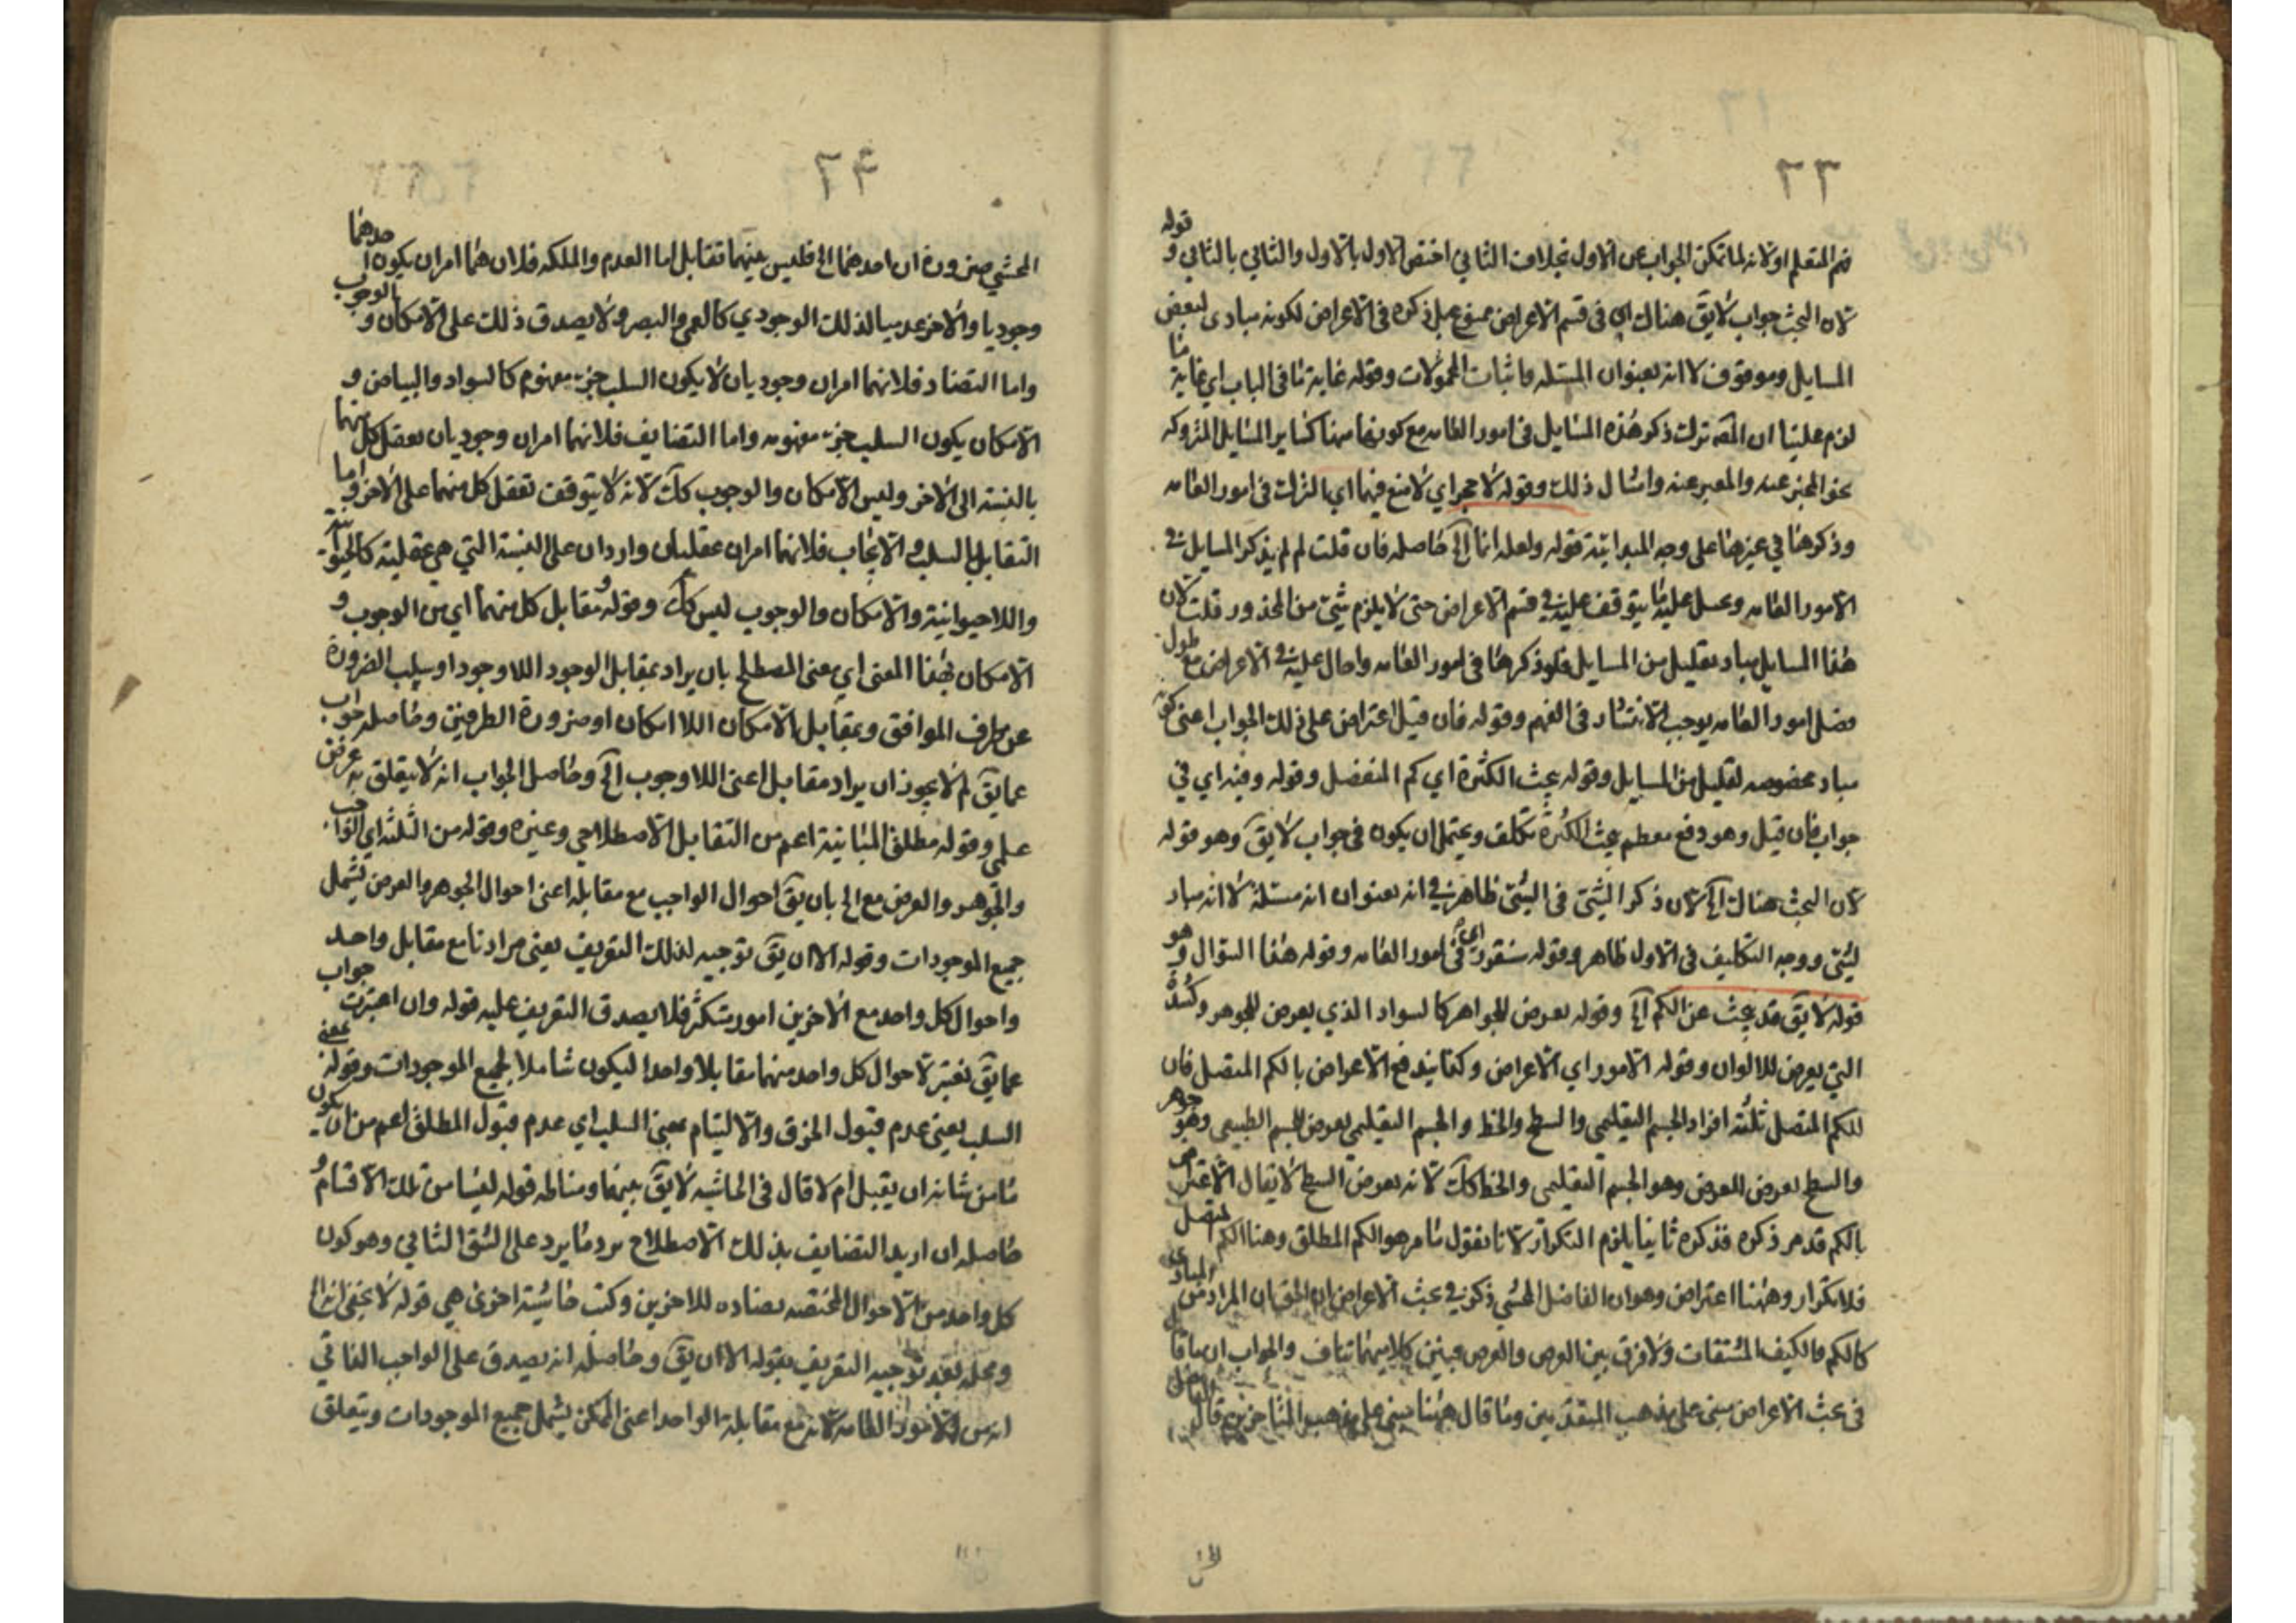 ٢٣
فهم المتعلم او لانه لما تمكن الجواب عن الاول بخلاف الثاني اختص الاول بالاول والثاني بالثاني و قوله
لان البحث جواب لا يق هناك اي في قسم الاعراض ممنوع بل ذكره في الاعراض لكونه مبادى لبعض
المسايل وموقوف لا انه بعنوان المسئله واثبات المحمولات وقوله غاية ما في الباب اي غاية ما
لزم علينا ان المصه ترك ذكر هذه المسايل في امور العامه مع كونها منها كساير المسايل المتروكه
نحو المخبر عنه والمعبر عنه وامثال ذلك وقوله لا حجر اي لا منع فيها اي الترك في امور العامه
وذكرها في غيرها على وجه المبدائية قوله ولعله انما آلخ حاصله فان قلت لم لم يذكر المسايل في
الامور العامه وعمل عليه ما يتوقف عليه في قسم الاعراض حتى لا يلزم شئ من المحذور قلت لان
هذا المسايل مباد لقليل من المسايل فلو ذكرها في امور العامه واحال عليه في الاعراض مع طول
فصل امور العامه يوجب الانتشار في الفهم وقوله فان قيل اعتراض على ذلك الجواب اعنى كونه
مباد مخصوصه لقليل من المسايل وقوله بحث الكثرة اي كم المنفصل وقوله وفيه اي في
جواب فان قيل وهو دفع معظم بحث الكثرة تكلف ويحتمل ان يكون في جواب لا يق وهو قوله
لان البحث هناك آلخ لان ذكر الشئ في الشئ ظاهر في انه بعنوان انه مسئلة لا انه مباد
لشئ ووجه التكليف في الاول ظاهر وقوله ستقود اي في امور العامه وقوله هذا السوال وهو
قوله لا يق قد بحث عن الكم آلخ وقوله بعرض للجواهر كالسواد الذي يعرض للجوهر وكشدة
التي يعرض للالوان وقوله الامور اي الاعراض وكذا يندفع الاعراض بالكم المتصل فان
للكم المتصل ثلثه افراد الجسم التعليمى والسطح والخط والجسم التعليمى يعرض للجسم الطبيعى وهو جوهر
والسطح يعرض للعرض وهو الجسم التعليمى والخط كك لانه يعرض السطح لا يقال الاعتراض
بالكم قد مر ذكره فذكره ثانيا يلزم التكرار لانا نقول ما مر هو الكم المطلق وهنا الكم المتصل
فلا تكرار وههنا اعتراض وهو ان الفاضل المحشي ذكر في بحث الاعراض ان الحق ان المراد من المبادى
كالكم والكيف المشتقات ولا فرق بين العرض والعرض فبين كلاميهما تناف والجواب ان ما قال
في بحث الاعراض مبنى على مذهب المتقدمين وما قال ههنا مبنى على مذهب المتاخرين قال الفاضل
٢٤
المحشي ضرورة ان احدهما الخ فليس بينهما تقابل اما العدم والملكه فلان هما امران يكون احدهما
وجوديا والاخر عدميا لذلك الوجودي كالعمي والبصر ولا يصدق ذلك على الامكان و الوجوب
واما التضاد فلانهما امران وجوديان لا يكون السلب جزء مفهوم كالسواد والبياض و
الامكان يكون السلب جزء مفهومه واما التضايف فلانهما امران وجوديان تعقل كل منهما
بالنسبه الى الاخر وليس الامكان والوجوب كك لانه لا يتوقف تعقل كل منهما على الاخر واما
التقابل بالسلب والايجاب فلانهما امران عقليان واردان على النسبة التي هي عقلية كالحيوانية
واللاحيوانية والامكان والوجوب ليس كك وقوله ومقابل كل منهما اي من الوجوب و
الامكان بهذا المعنى اي معنى المصطلح بان يراد بمقابل الوجود اللاوجود او سلب الضرورة
عن طرف الموافق وبمقابل الامكان اللاامكان او ضرورة الطرفين وحاصله جواب
عما يق لم لا يجوز ان يراد مقابل اعنى اللاوجوب آلخ وحاصل الجواب انه لا يتعلق به غرض
علمي وقوله مطلق المباينة اعم من التقابل الاصطلاحي وغيره وقوله من الثلثه اي الواجب
والجوهر والعرض مع الخ بان يق احوال الواجب مع مقابله اعنى احوال الجوهر والعرض يشمل
جميع الموجودات وقوله الا ان يق توجيه لذلك التعريف يعني مرادنا مع مقابل واحد
واحوال كل واحد مع الاخرين امور متكثر فلا يصدق التعريف عليه قوله وان اعتبرت جواب
عما يق نعتبر لاحوال كل واحد منهما مقابلا واحدا ليكون شاملا لجميع الموجودات وقوله بمعنى
السلب يعني عدم قبول الخرق والالتيام بمعنى السلب اي عدم قبول المطلق اعم من ان يكون
ما من شانه ان يقبل ام لا قال في الحاشيه لا يق بينهما ومناطه قوله ليسا من تلك الاقسام و
حاصله ان اريد التضايف بذلك الاصطلاح يرد ما يرد على الشق الثاني وهو كون
كل واحد من الاحوال المختصه بمضاده للاخرين وكتب حاشية اخرى هي قوله لا يخفى انه
ومحله بعد توجيه التعريف بقوله الا ان يق وحاصله انه يصدق على الواجب الفاني
انه من الامور العامه لانه مع مقابلة الواحد اعنى الممكن يشمل جميع الموجودات ويتعلق